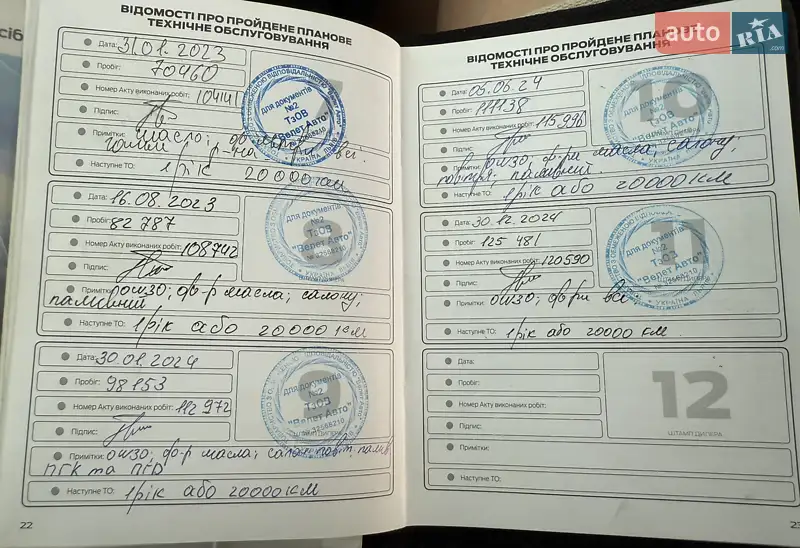 сіб
ВІДОМОСТІ ПРО ПРОЙДЕНЕ ПЛАНОВЕ
ТЕХНІЧНЕ ОБСЛУГОВУВАННЯ
Дата: 31.01.2023
Пробіг: 70460
Номер Акту виконаних робіт: 104141
Підпис:
Примітки: масло; ф-р
всі.
Наступне ТО: 1 рік 20000км
7
для документів
№2
ТзОВ
"Велет Авто"
УКРАЇНА
Дата: 16.08.2023
Пробіг: 82 787
Номер Акту виконаних робіт: 108742
Підпис:
Примітки: ошзо; ф-р масла; салону;
паливний
Наступне ТО: 1 рік або 20000 км
8
для документів
№2
ТзОВ
"Велет Авто"
УКРАЇНА
Дата: 30.01.2024
Пробіг: 98153
Номер Акту виконаних робіт: 112 972
Підпис:
Примітки: ошзо; ф-р масла; салон повіт. палив.
ПГК та ПГР
Наступне ТО: 1 рік або 20000 км
9
для документів
№2
ТзОВ
"Велет Авто"
ШТАМП ДИЛЕРА
22
ВІДОМОСТІ ПРО ПРОЙДЕНЕ ПЛАНОВЕ
ТЕХНІЧНЕ ОБСЛУГОВУВАННЯ
Дата: 05.06.24
Пробіг: 111138
Номер Акту виконаних робіт: 115996
Підпис:
Примітки: ошзо; ф-ри масла, салону;
повітря; паливний.
Наступне ТО: 1 рік або 20000 км
10
для документів
№2
ТзОВ
УКРАЇНА
Дата: 30.12.2024
Пробіг: 125 481
Номер Акту виконаних робіт: 120590
Підпис:
Примітки: ошзо; ф-ри всі;
Наступне ТО: 1 рік або 20000 км
11
для документів
№2
ТзОВ
"Велет Авто"
УКРАЇНА
Дата:
Пробіг:
Номер Акту виконаних робіт:
Підпис:
Примітки:
Наступне ТО:
12
ШТАМП ДИЛЕРА
23
auto RIA .com